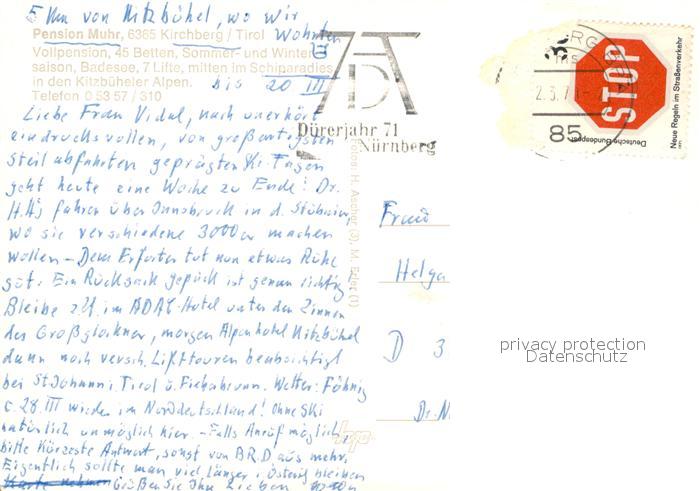 5 Km von Kitzbühel, wo wir
wohnten
Pension Muhr, 6365 Kirchberg / Tirol
Vollpension, 45 Betten, Sommer- und Winter-
saison, Badesee, 7 Lifte, mitten im Schiparadies
in den Kitzbüheler Alpen.
Telefon 0 53 57 / 310
bis 20 III
Liebe Frau Vidal, nach unerhört
eindrucksvollen, von großartigsten
Steilabfahrten geprägten Ski-Tagen
geht heute eine Woche zu Ende! Dr.
H.H's fahren über Innsbruck in d. Stubaier,
wo sie verschiedene 3000er machen
wollen – Dem Erfurter tut nun etwas Ruhe
gut. Ein Rucksack gepäck ist genau richtig
Bleibe z.Zt. im ADAC-Hotel unter den Zinnen
des Großglockner, morgen Alpenhotel Kitzbühel
dann noch versch. Lifttouren beabsichtigt
bei St Johann i. Tirol u. Fieberbrunn. Wetter: Föhnig
c. 28. III wieder im Norddeutschland! Ohne Ski
natürlich unmöglich hier. – Falls Anruf möglich,
bitte kürzeste Antwort, sonst von BRD aus mehr.
Eigentlich sollte man viel länger i. Österr. bleiben
Grüßen Sie Ihre Lieben
Dürerjahr 71
Nürnberg
AD
85
STOP
Deutsche Bundespost
Neue Regeln im Straßenverkehr
Fotos: H. Ascher (3), M. Esler (1)
Frau
Helga
D 3
privacy protection
Datenschutz